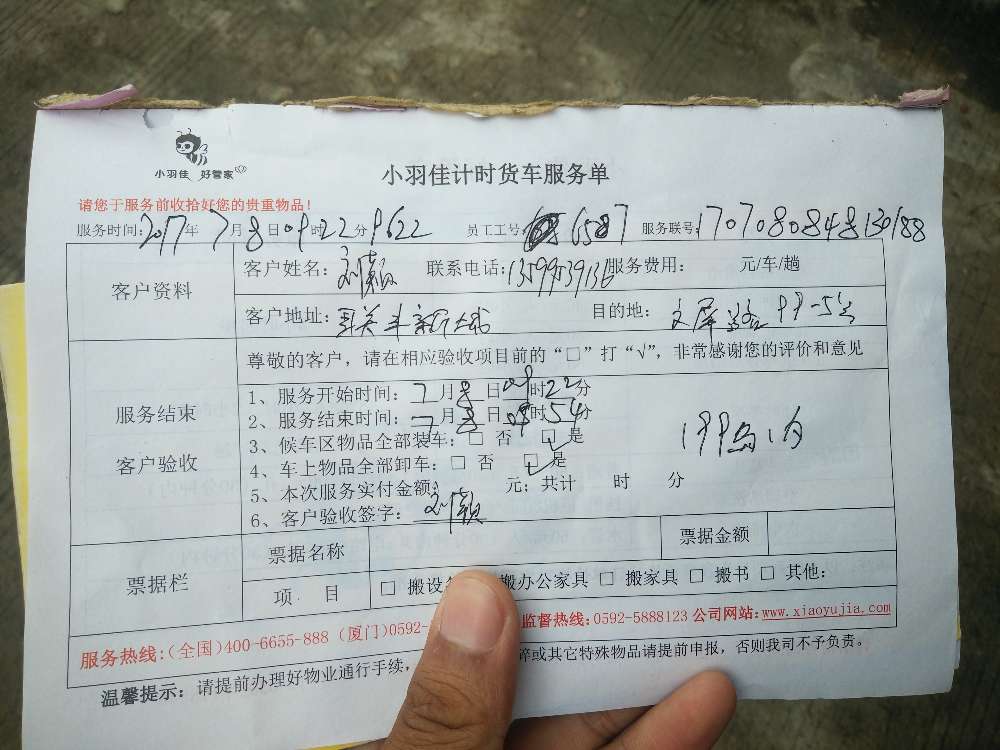 小羽佳 好管家
小羽佳计时货车服务单
请您于服务前收拾好您的贵重物品!
服务时间: 2017年 7月8日09时22分 9622 员工工号: 6587 服务联号: 1707080848130188
客户资料
客户姓名: 刘颖 联系电话: 13599539136 服务费用: 元/车/趟
客户地址: 目的地: 文屏 99-5号
服务结束
客户验收
尊敬的客户,请在相应验收项目前的“□”打“√”,非常感谢您的评价和意见
1、服务开始时间: 7月8日09时22分
2、服务结束时间: 7月8日09时54分
3、候车区物品全部装车: □ 否 □ 是
4、车上物品全部卸车: □ 否 □ 是
5、本次服务实付金额: 元; 共计 时 分
6、客户验收签字: 刘颖
199岛内
票据栏
票据名称 票据金额
项 目 □ 搬设 搬办公家具 □ 搬家具 □ 搬书 □ 其他:
服务热线:(全国)400-6655-888 (厦门)0592- 监督热线:0592-5888123 公司网站:www.xiaoyujia.com
温馨提示: 请提前办理好物业通行手续, 碎或其它特殊物品请提前申报,否则我司不予负责。